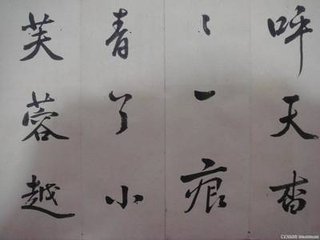 呼天杳
〻一痕
青了小
芙蓉越